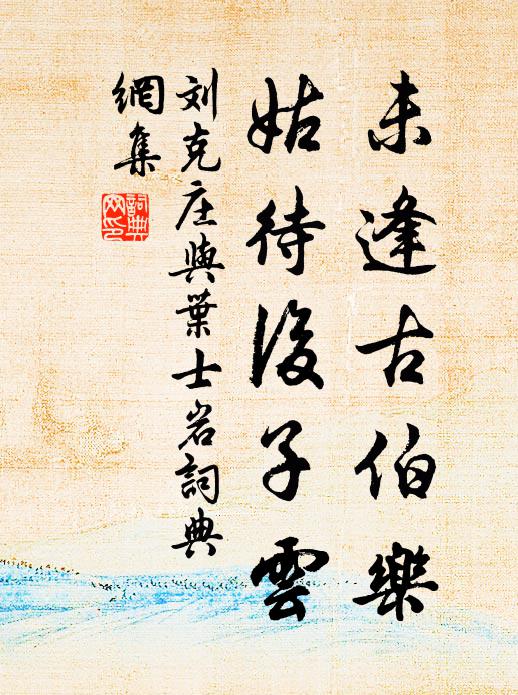 未逢古伯樂
姑待後子雲
刘克庄與葉士岩詞典
網集
詞典
网印